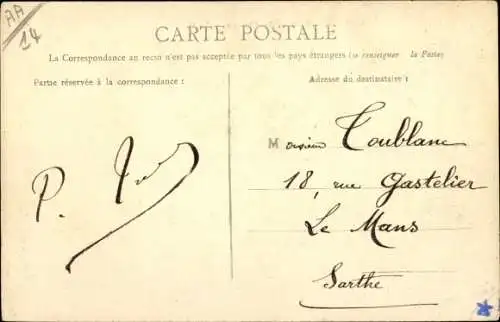 AA
14
CARTE POSTALE
La Correspondance au recto n'est pas acceptée par tous les pays étrangers (se renseigner à la Poste)
Partie réservée à la correspondance :
Adresse du destinataire :
Monsieur Toublanc
18, rue Gastelier
Le Mans
Sarthe
P.